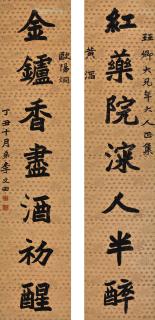 卿大兄年大人正集
紅藥院深人半醉
黃滔
歐陽烱
金鑪香盡酒初醒
丁丑十月弟李文田